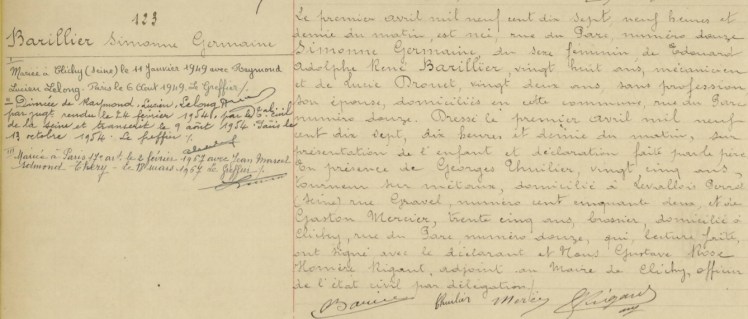 123
Barillier Simonne Germaine
I
Mariée à Clichy (Seine) le 11 Janvier 1949 avec Raymond
Lucien Lelong. Paris le 6 Août 1949. Le Greffier /.
II Divorcée de Raymond, Lucien, Lelong
par jugt rendu le 24 février 1954, par le T. Civil
de la Seine et transcrit le 9 août 1954. Paris le
13 octobre 1954. Le greffier /.
III Mariée à Paris 17e art. le 2 février 1957 avec Jean Marcel
Théry. le mars 1957 Le Greffier /.
Le premier avril mil neuf cent dix sept, neuf heures et
demie du matin, est née, rue du Parc, numéro douze
Simonne Germaine, du sexe féminin, de Edouard
Adolphe René Barillier, vingt huit ans, mécanicien
et de Drouet, vingt deux ans, sans profession
son épouse, domiciliés en cette commune, rue du Parc
numéro douze. Dressé le premier avril mil neuf
cent dix sept, dix heures et demie du matin, sur
présentation de l'enfant et déclaration faite par le père
En présence de Georges Thuilier, vingt cinq ans,
tourneur sur métaux, domicilié à Levallois Perret
(Seine) rue Gravel, numéro cent cinquante deux, et de
Gaston Mercier, trente cinq ans, brossier, domicilié à
Clichy, rue du Parc numéro douze, qui, lecture faite,
ont signé avec le déclarant et Nous Gustave
Rigaut, adjoint au Maire de Clichy, officier
de l'état civil par délégation /.